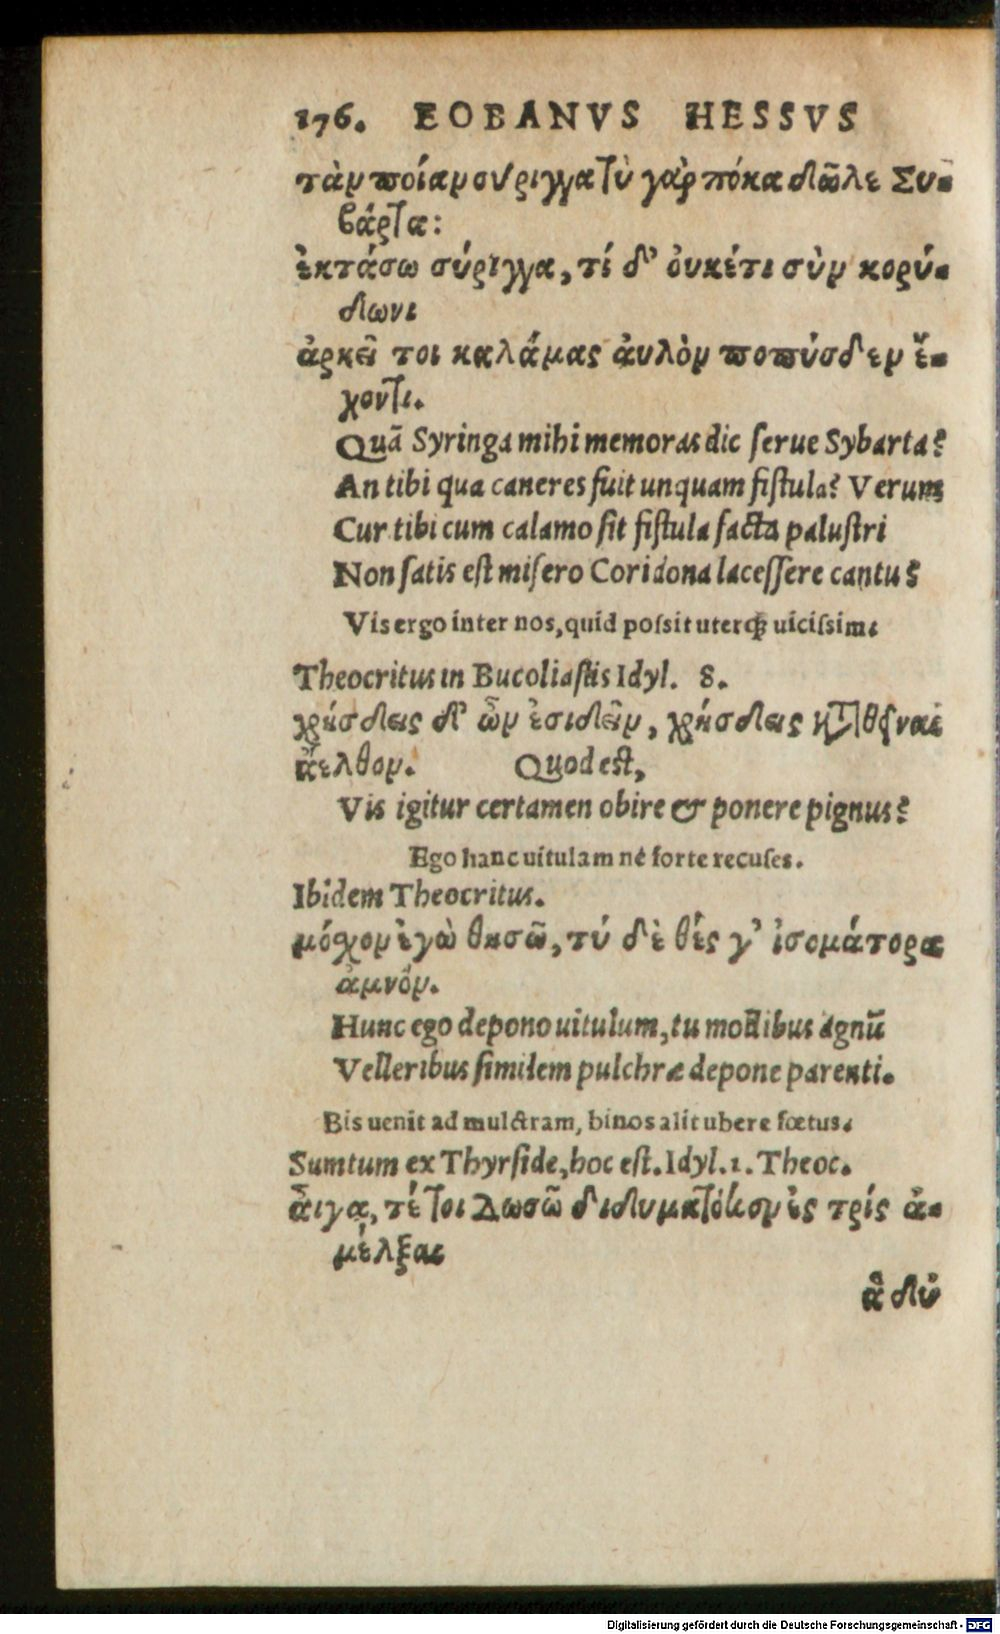 176. EOBANVS HESSVS
τὰν ποίαν σύριγγα τὺ γάρ πόκα δῶλε Συ-
βάρτα:
ἐκτάσω σύριγγα, τί δ' ὀυκέτι σὺν κορύ-
δωνι
ἀρκεῖ τοι καλάμας ἀυλὸν ποπύσδεν ἔ-
χοντι.
Quã Syringa mihi memoras dic ſerue Sybarta?
An tibi qua caneres fuit unquam fiſtula? Verum
Cur tibi cum calamo ſit fiſtula facta paluſtri
Non ſatis eſt miſero Coridona laceſſere cantu?
Vis ergo inter nos, quid poſsit uterq; uiciſsim.
Theocritus in Bucoliaſtis Idyl. 8.
χρήσδεις δ' ὦν ἐσιδεῖν, χρήσδεις καταθεῖναι
ἄελθον. Quod eſt,
Vis igitur certamen obire & ponere pignus?
Ego hanc uitulam né forte recuſes.
Ibidem Theocritus.
μόσχον ἐγὼ θησῶ, τύ δὲ θές γ' ἰσομάτορα
ἀμνόν.
Hunc ego depono uitulum, tu mollibus agnũ
Velleribus ſimilem pulchræ depone parenti.
Bis uenit ad mulctram, binos alit ubere fœtus.
Sumtum ex Thyrſide, hoc eſt. Idyl. 1. Theoc.
ἆιγα, τέ τοι Δωσῶ διδυματόκον ἐς τρίς ἀ-
μέλξαι
ἃ δύ
Digitalisierung gefördert durch die Deutsche Forschungsgemeinschaft - DFG